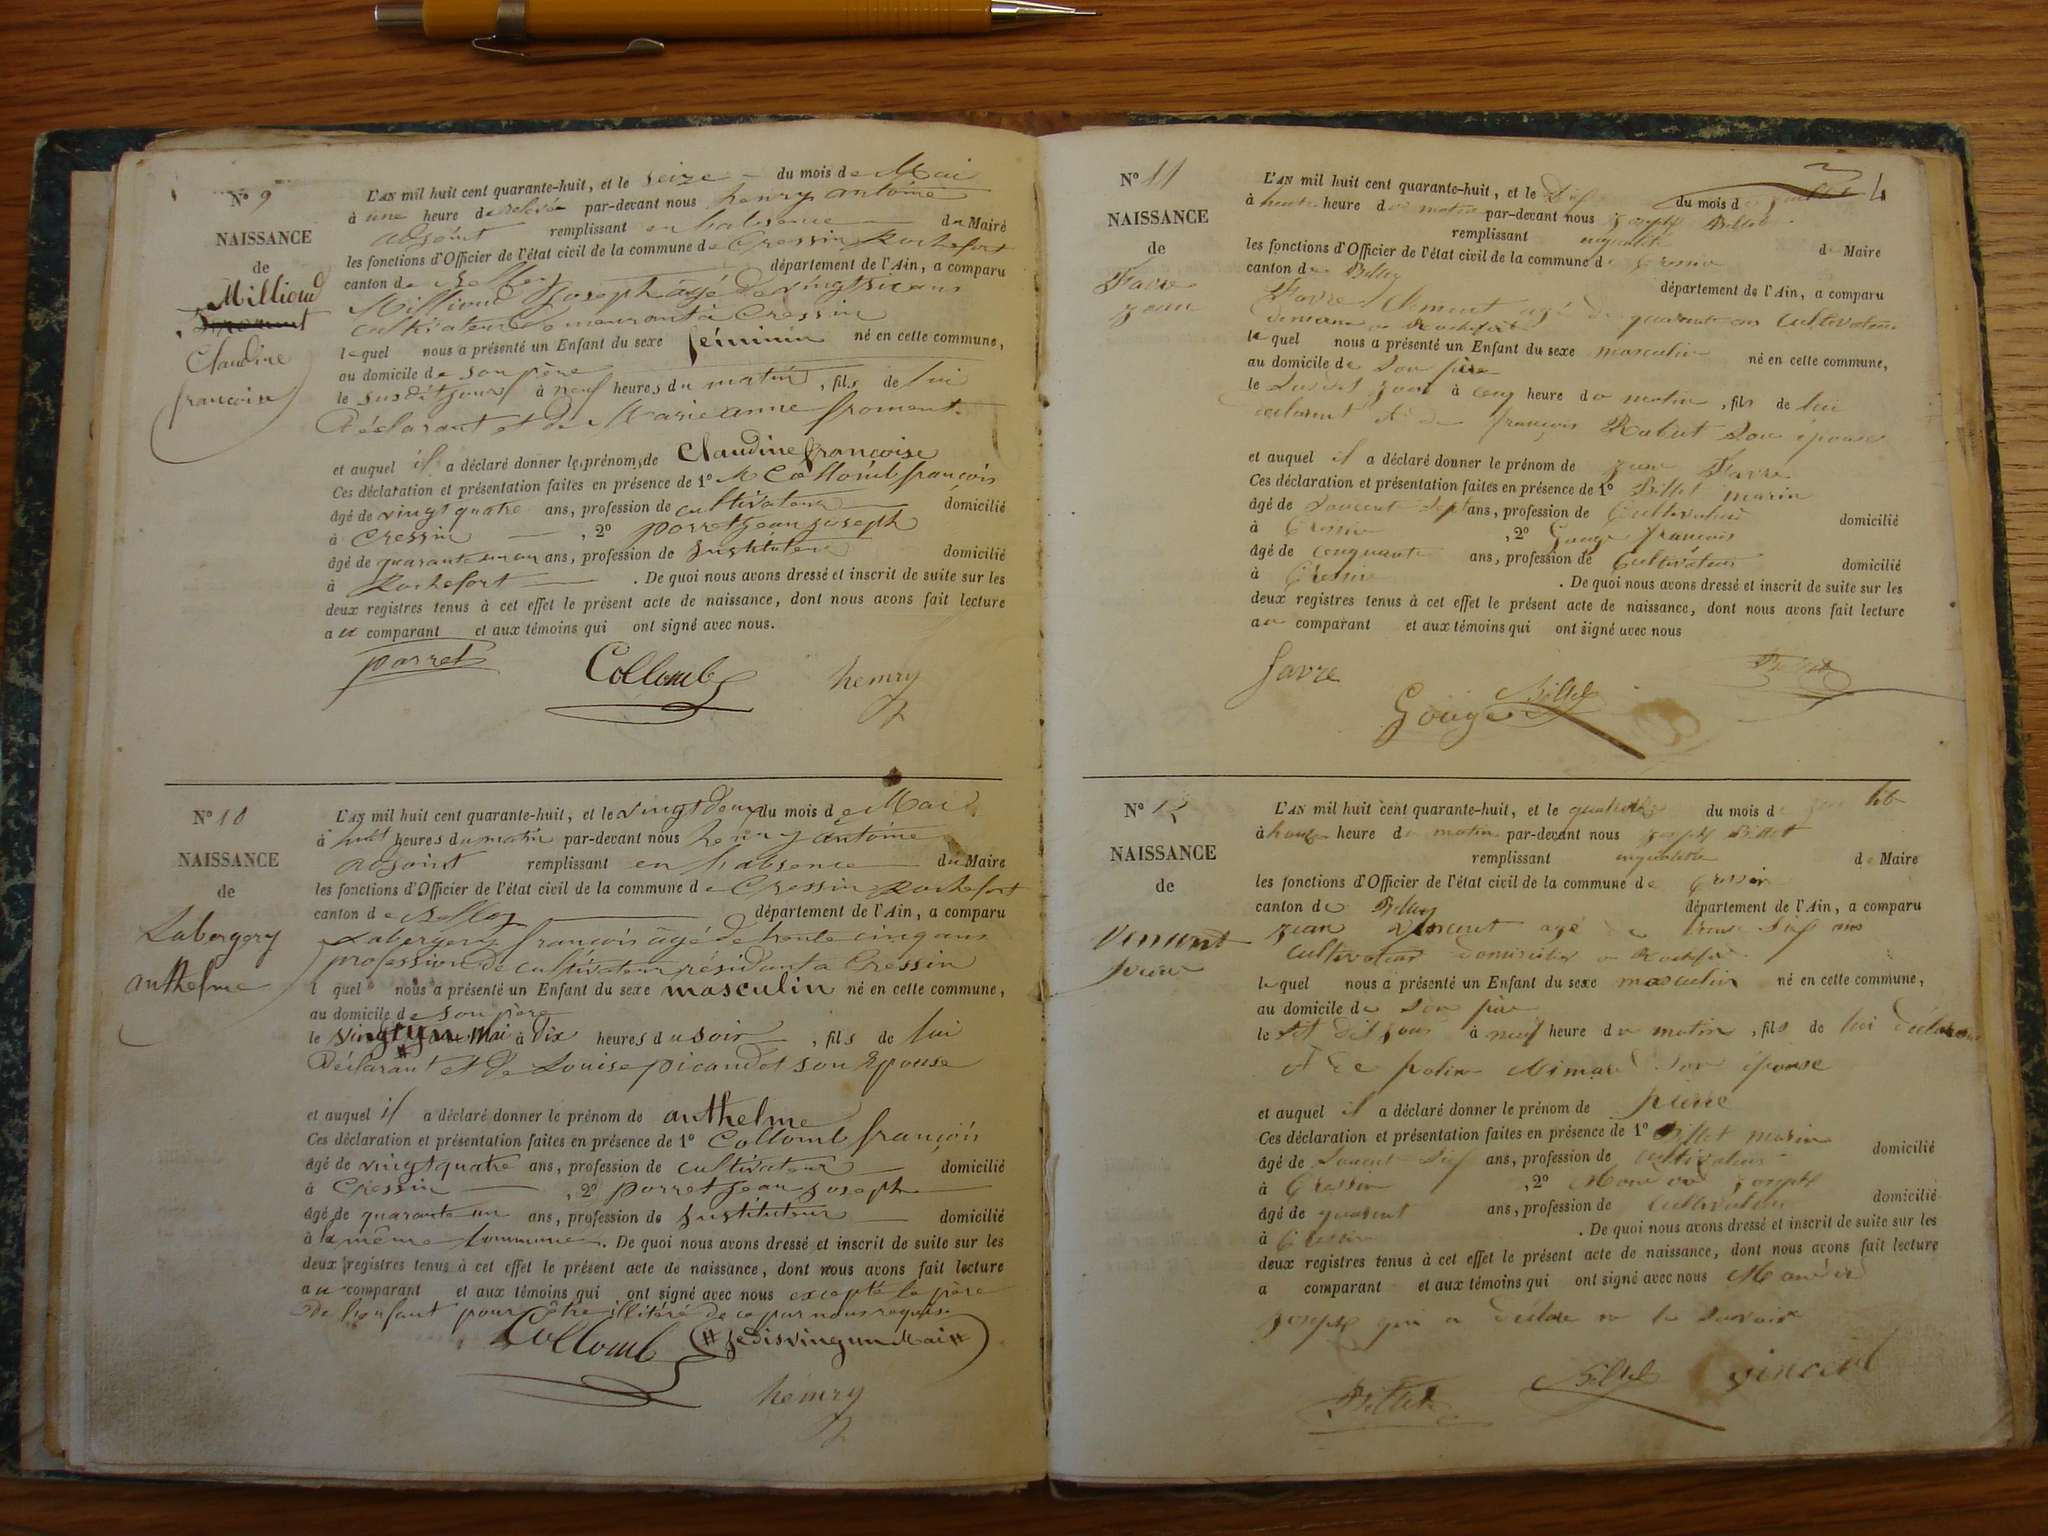 Nº 9
NAISSANCE
de
Milliond
Claudine
françoise
L'AN mil huit cent quarante-huit, et le seize du mois de Mai
à une heure de relevée par-devant nous henry antoine
adjoint remplissant en l'absence du Maire
les fonctions d'Officier de l'état civil de la commune de Cressin Rochefort
canton de Belley département de l'Ain, a comparu
Milliond Joseph âgé de vingt six ans
cultivateur demeurant a Cressin
lequel nous a présenté un Enfant du sexe féminin né en cette commune,
au domicile de son père
le susdit jour à neuf heures du matin, fils de lui
Déclarant et de Marie anne froment
et auquel il a déclaré donner les prénoms de Claudine françoise
Ces déclaration et présentation faites en présence de 1º Collomb françois
âgé de vingt quatre ans, profession de cultivateur domicilié
à Cressin, 2º porret jean joseph
âgé de quarante un ans, profession de Instituteur domicilié
à Rochefort. De quoi nous avons dressé et inscrit de suite sur les
deux registres tenus à cet effet le présent acte de naissance, dont nous avons fait lecture
au comparant et aux témoins qui ont signé avec nous.
porret Collomb henry
Nº 10
NAISSANCE
de
Labergery
anthelme
L'AN mil huit cent quarante-huit, et le vingt deux du mois de Mai
à huit heures du matin par-devant nous henry antoine
adjoint remplissant en l'absence du Maire
les fonctions d'Officier de l'état civil de la commune de Cressin Rochefort
canton de Belley département de l'Ain, a comparu
Labergery françois âgé de trente cinq ans
profession de cultivateur résidant a Cressin
lquel nous a présenté un Enfant du sexe masculin né en cette commune,
au domicile de son père
le vingt un Mai à dix heures du soir, fils de lui
Déclarant et de Louise picandet son Epouse
et auquel il a déclaré donner le prénom de anthelme
Ces déclaration et présentation faites en présence de 1º Collomb françois
âgé de vingt quatre ans, profession de cultivateur domicilié
à Cressin, 2º porret jean joseph
âgé de quarante un ans, profession de Instituteur domicilié
à la même Commune. De quoi nous avons dressé et inscrit de suite sur les
deux registres tenus à cet effet le présent acte de naissance, dont nous avons fait lecture
au comparant et aux témoins qui ont signé avec nous excepté le père
de l'enfant pour être illitéré de ce par nous requis
Collomb (# je dis vingt un Mai #)
henry
Nº 11
NAISSANCE
de
Favre
jean
4
L'AN mil huit cent quarante-huit, et le du mois de
à heure du matin par-devant nous joseph Billet
remplissant de Maire
les fonctions d'Officier de l'état civil de la commune de Cressin
canton de Belley département de l'Ain, a comparu
Favre Clément agé de quarante ans Cultivateur
lequel nous a présenté un Enfant du sexe masculin né en cette commune,
au domicile de son père
le à cinq heure du matin, fils de lui
déclarant et de françois Rubat son épouse
et auquel il a déclaré donner le prénom de jean Favre
Ces déclaration et présentation faites en présence de 1º Billet marin
âgé de ans, profession de Cultivateur domicilié
à Cressin, 2º Gouge françois
âgé de cinquante ans, profession de Cultivateur domicilié
à Cressin. De quoi nous avons dressé et inscrit de suite sur les
deux registres tenus à cet effet le présent acte de naissance, dont nous avons fait lecture
au comparant et aux témoins qui ont signé avec nous
favre Billet
Gouge Billet
Nº 12
NAISSANCE
de
Vincent
pierre
L'AN mil huit cent quarante-huit, et le du mois de
à heure du matin par-devant nous joseph Billet
remplissant de Maire
les fonctions d'Officier de l'état civil de la commune de Cressin
canton de Belley département de l'Ain, a comparu
jean Vincent agé de ans
Cultivateur domicilier a
lequel nous a présenté un Enfant du sexe masculin né en cette commune,
au domicile de son père
le à neuf heure du matin, fils de lui
et de son épouse
et auquel il a déclaré donner le prénom de pierre
Ces déclaration et présentation faites en présence de 1º Billet marin
âgé de ans, profession de cultivateur domicilié
à Cressin, 2º joseph
âgé de quarent ans, profession de Cultivateur domicilié
à Cressin. De quoi nous avons dressé et inscrit de suite sur les
deux registres tenus à cet effet le présent acte de naissance, dont nous avons fait lecture
a comparant et aux témoins qui ont signé avec nous
joseph qui a
Billet Billet vincent